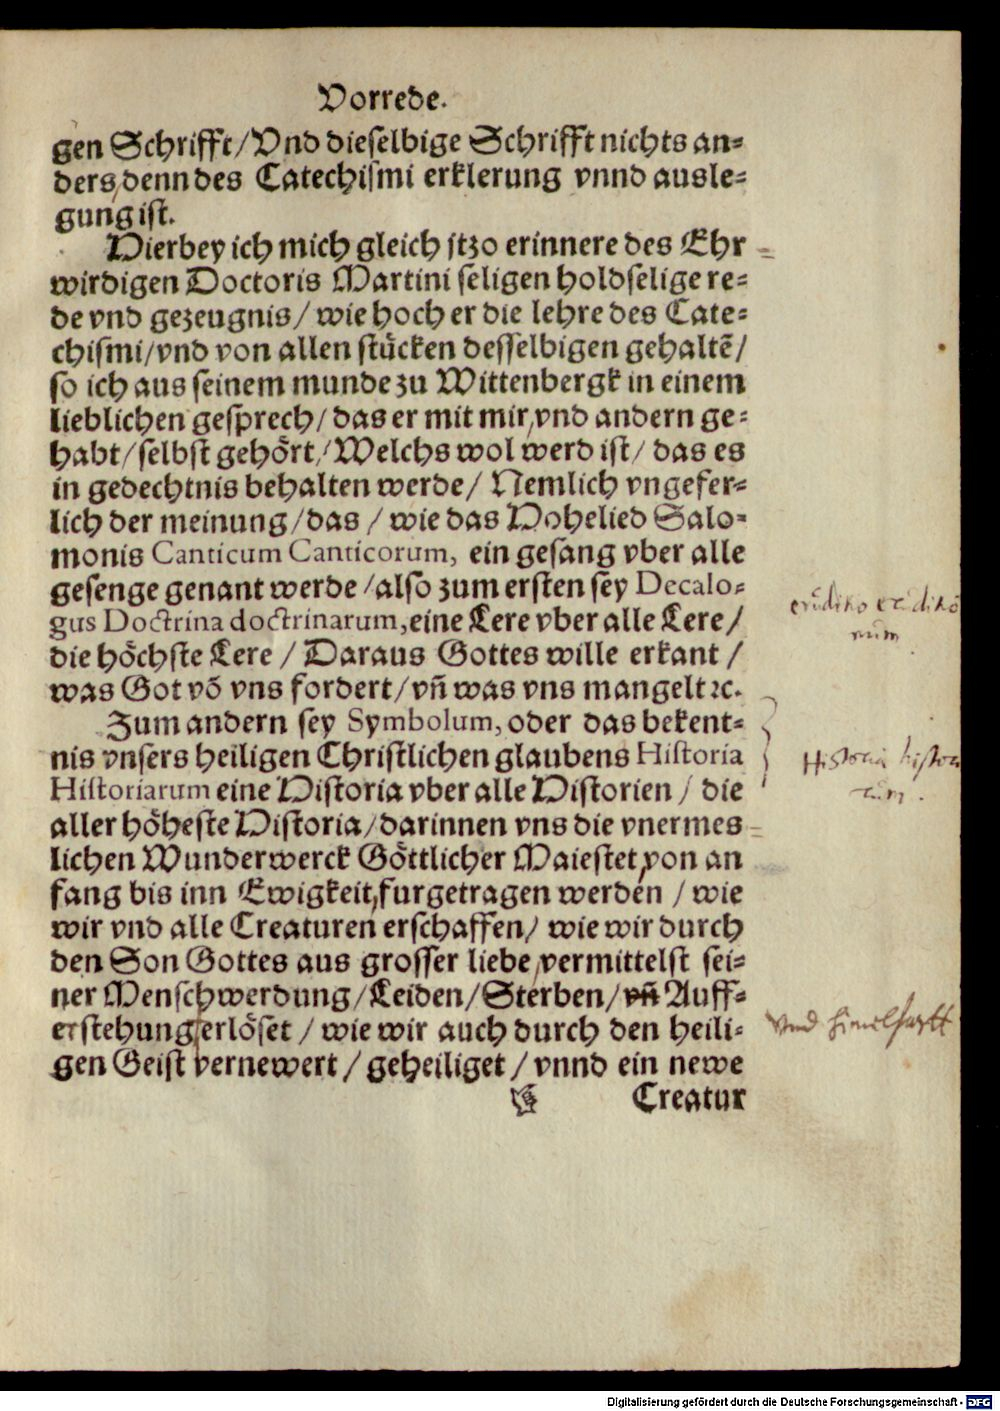 Vorrede.
gen Schrifft/Vnd dieselbige Schrifft nichts an=
ders/denn des Catechismi erklerung vnnd ausle=
gung ist.
Hierbey ich mich gleich jtzo erinnere des Ehr
wirdigen Doctoris Martini seligen holdselige re=
de vnd gezeugnis/ wie hoch er die lehre des Cate=
chismi/vnd von allen stücken desselbigen gehaltē/
so ich aus seinem munde zu Wittenbergk in einem
lieblichen gesprech/ das er mit mir/vnd andern ge=
habt/selbst gehört/Welchs wol werd ist/ das es
in gedechtnis behalten werde/ Nemlich vngefer=
lich der meinung/das / wie das Hohelied Salo=
monis Canticum Canticorum, ein gesang vber alle
gesenge genant werde /also zum ersten sey Decalo=
gus Doctrina doctrinarum, eine Lere vber alle Lere/
die höchste Lere / Daraus Gottes wille erkant /
was Got vō vns fordert/vñ was vns mangelt ꝛc.
Zum andern sey Symbolum, oder das bekent=
nis vnsers heiligen Christlichen glaubens Historia
Historiarum eine Historia vber alle Historien / die
aller höheste Historia/darinnen vns die vnermes
lichen Wunderwerck Göttlicher Maiestet/von an
fang bis inn Ewigkeit/furgetragen werden / wie
wir vnd alle Creaturen erschaffen/ wie wir durch
den Son Gottes aus grosser liebe/vermittelst sei=
ner Menschwerdung/Leiden/Sterben/vñ Auff=
erstehung/erlöset / wie wir auch durch den heili=
gen Geist vernewert / geheiliget / vnnd ein newe
Creatur
Historia histor
vnd himelfartt
Digitalisierung gefördert durch die Deutsche Forschungsgemeinschaft - DFG